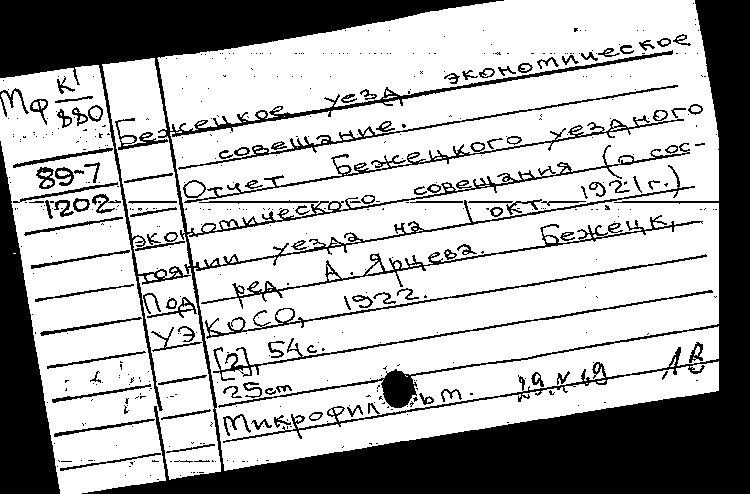 Мф К1/880
89-7
1202
Бежецкое уезд. экономическое
совещание.
Отчет Бежецкого уездного
экономического совещания (о сос-
тоянии уезда на 1 окт. 1921г.)
Под ред. А. Ярцева. Бежецк,
УЭКОСО, 1922.
[2], 54с.
25cm
Микрофильм.